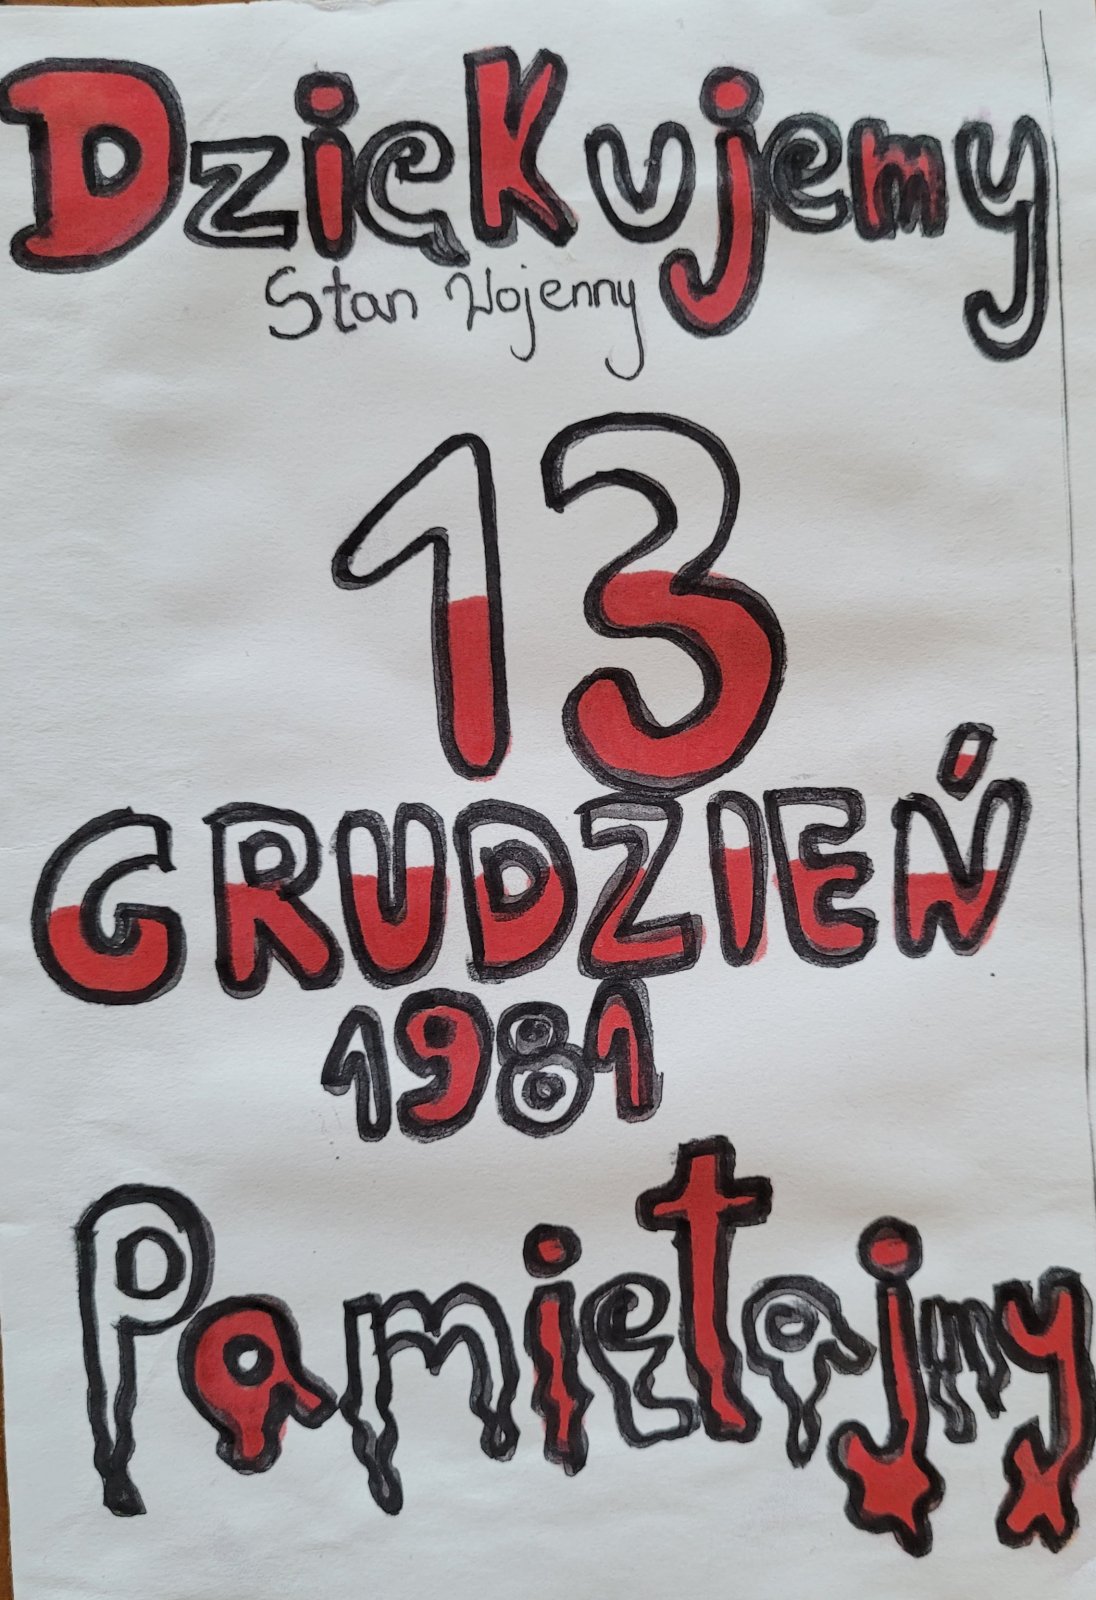 Dziękujemy
Stan Wojenny
13
GRUDZIEŃ
1981
Pamiętajmy